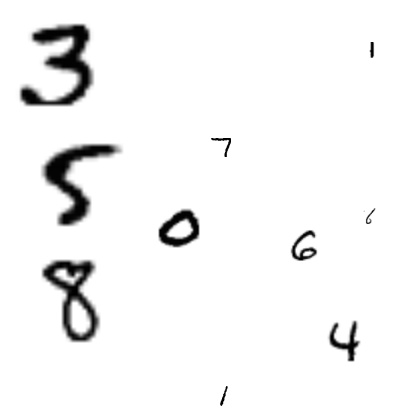 3
1
7
5
0
6
6
8
4
1